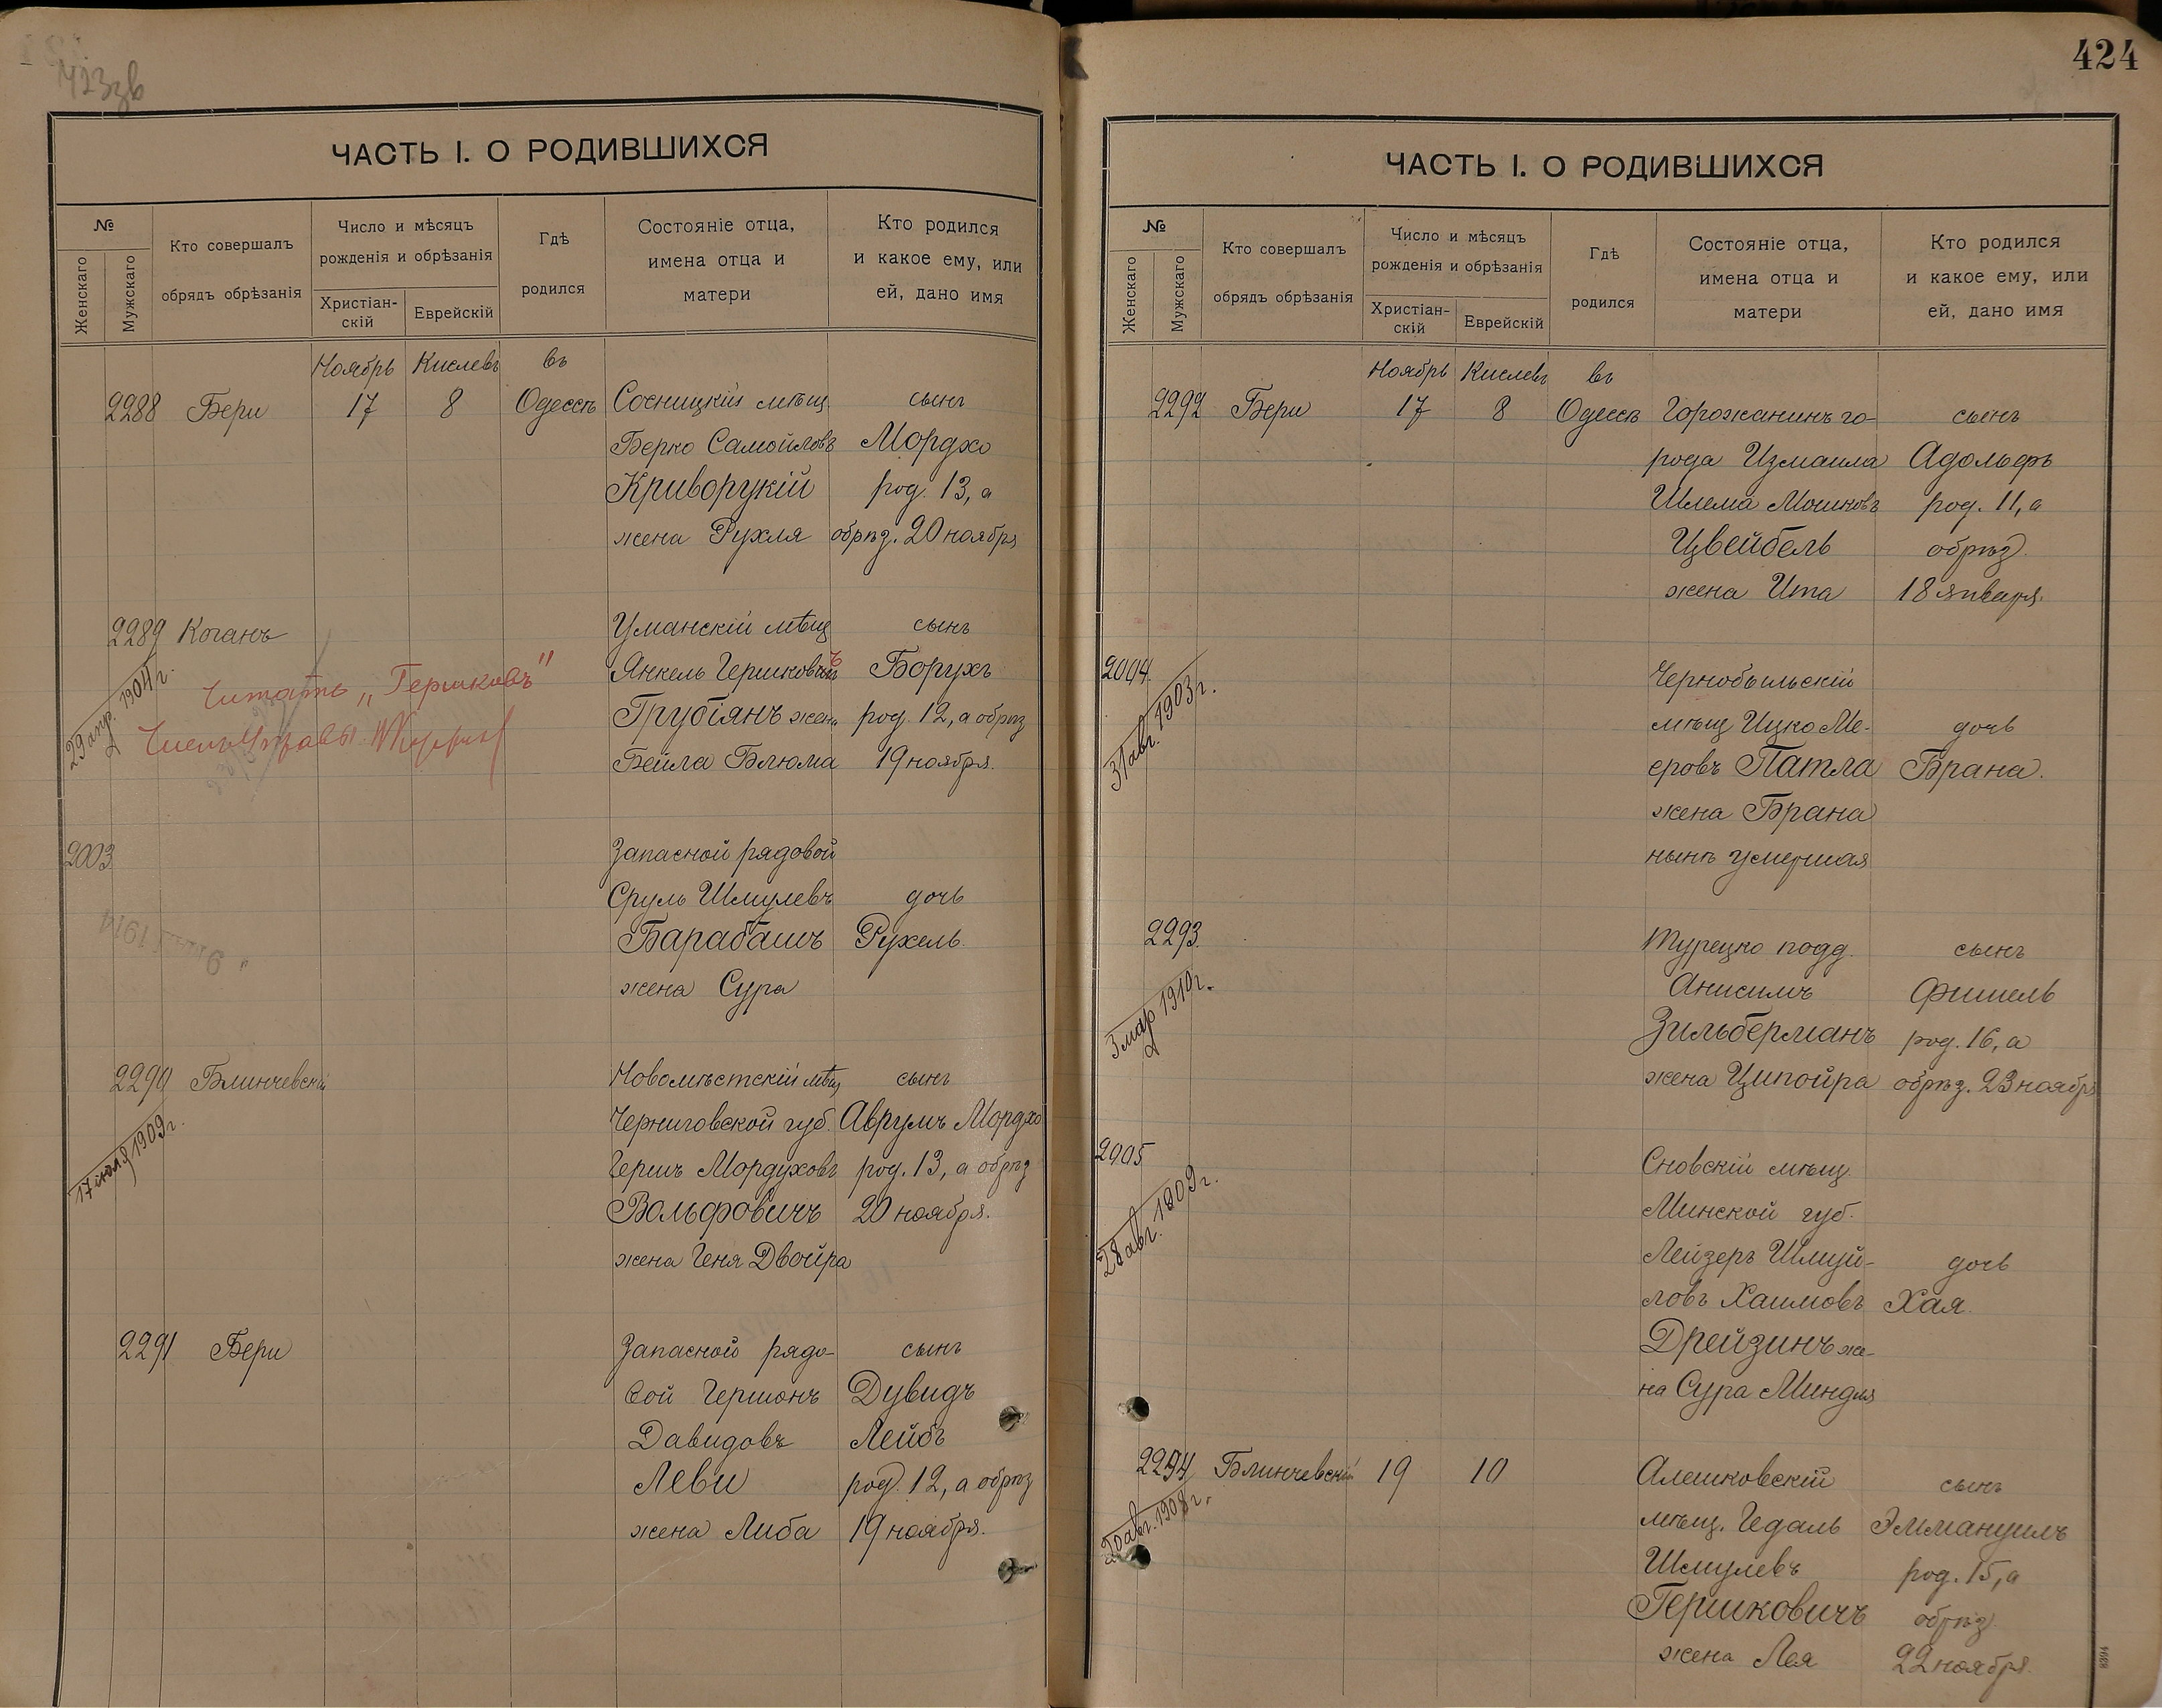 423зв
ЧАСТЬ I. О РОДИВШИХСЯ
№
Женскаго
Мужскаго
Кто совершалъ
обрядъ обрѣзанія
Число и мѣсяцъ
рожденія и обрѣзанія
Христіан-
скій
Еврейскій
Гдѣ
родился
Состояніе отца,
имена отца и
матери
Кто родился
и какое ему, или
ей, дано имя
Ноябрь Кислевъ въ
2288 Бери 17 8 Одессѣ Сосницкій мѣщ. сынъ
Берко Самойловъ Мордхо
Криворукій род. 13, а
жена Рухля обрѣз. 20 ноября
2289 Коганъ Уманскій мѣщ сынъ
29 апр. 1904 г.
Читать „Гершковъ"
Членъ Управы
Янкель Гершковъ Борухъ
Грубіянъ жена род. 12, а обрѣз
Бейла Блюма 19 ноября.
2003 Запасной рядовой
Сруль Шмулевъ дочь
Барабашъ Рухель.
жена Сура
1914
2290 Блинчевскій Новомѣстскій мѣщ сынъ
17 іюля 1909 г.
Черниговской губ. Аврумъ Мордхо
Гершъ Мордуховъ род. 13, а обрѣз
Вольфовичъ 20 ноября.
жена Геня Двойра
2291 Бери Запасной рядо- сынъ
вой Гершонъ Дувидъ
Давидовъ Лейбъ
Леви род. 12, а обрѣз
жена Либа 19 ноября.
424
ЧАСТЬ I. О РОДИВШИХСЯ
№
Женскаго
Мужскаго
Кто совершалъ
обрядъ обрѣзанія
Число и мѣсяцъ
рожденія и обрѣзанія
Христіан-
скій
Еврейскій
Гдѣ
родился
Состояніе отца,
имена отца и
матери
Кто родился
и какое ему, или
ей, дано имя
Ноябрь Кислевъ въ
2292 Бери 17 8 Одессѣ Горожанинъ го- сынъ
рода Измаила Адольфъ
Шлема Мошковъ род. 11, а
Цвейбель обрѣз.
жена Ита 18 января.
2004 Чернобыльскій
31 авг. 1903 г.
мѣщ Ицко Ме- дочь
еровъ Патла Брана.
жена Брана
нынѣ умершая
2293 Турецко подд. сынъ
3 мар 1910 г.
Анисимъ Фишель
Зильберманъ род. 16, а
жена Ципойра обрѣз. 23 ноября
2005 Сновскій мѣщ.
28 авг. 1909 г.
Минской губ.
Лейзеръ Шмуй- дочь
ловъ Хаимовъ Хая.
Дрейзинъ же-
на Сура Миндля
2294 Блинчевскій 19 10 Алешковскій сынъ
20 авг. 1908 г.
мѣщ. Гедаль Эммануилъ
Шмулевъ род. 15, а
Гершковичъ обрѣз.
жена Лея 22 ноября.
8394